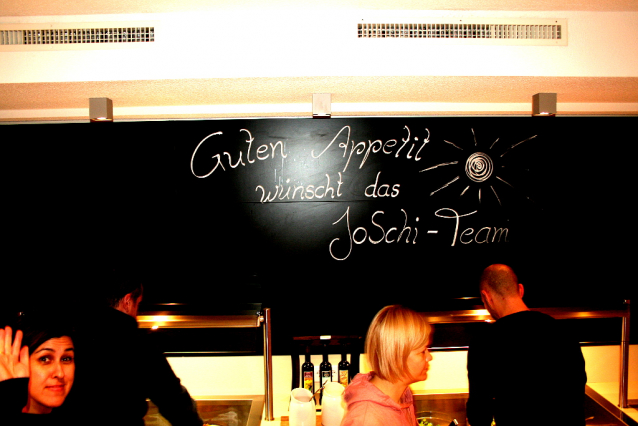 Guten Appetit
wünscht das
JoSchi-Team